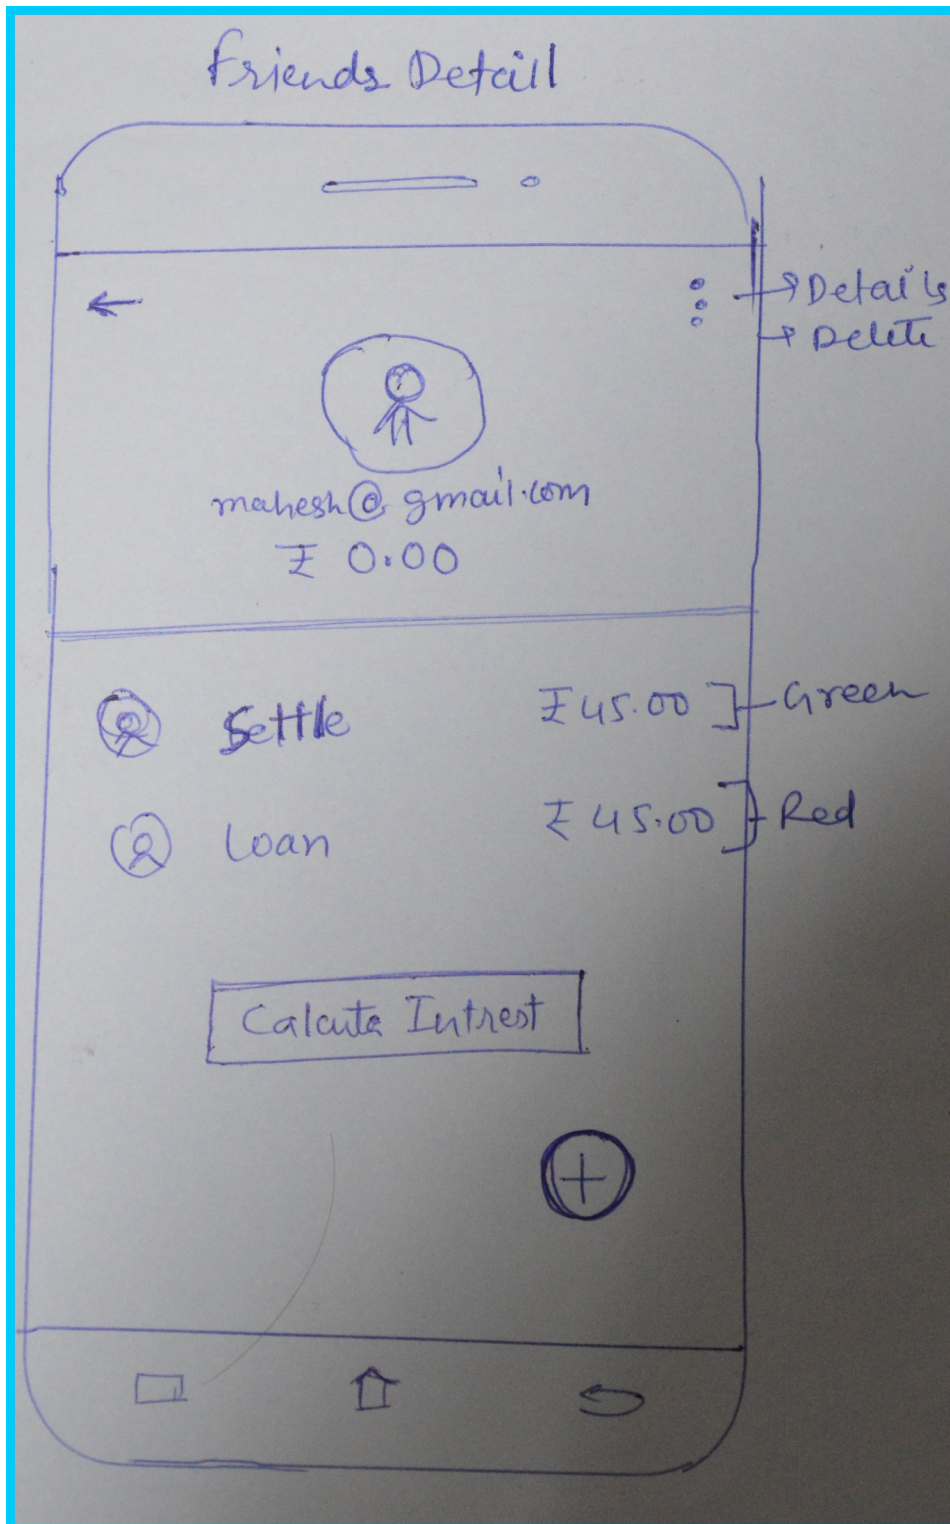 Friends Detail
Details
Delete
mahesh@gmail.com
₹ 0.00
Settle ₹45.00 Green
Loan ₹45.00 Red
Calcuta Intrest
+